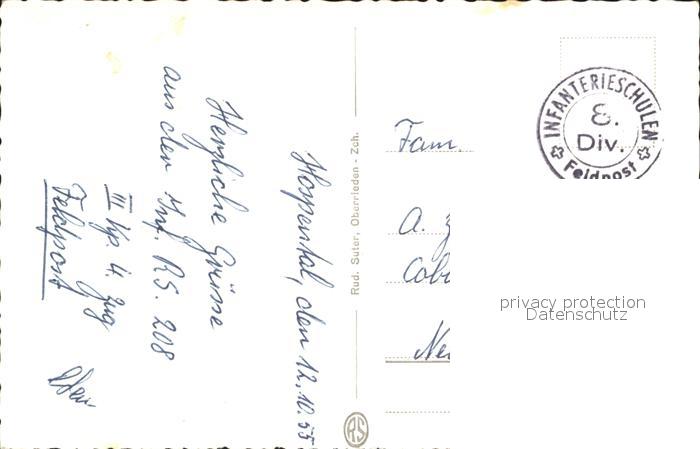 Hospental, den 12.10.55
Herzliche Grüsse
aus der Inf. RS. 208
III Kp. 4. Zug
Feldpost
Rud. Suter, Oberrieden - Zch.
RS
INFANTERIESCHULEN
8.
Div.
Feldpost
Fam.
A.
privacy protection
Datenschutz